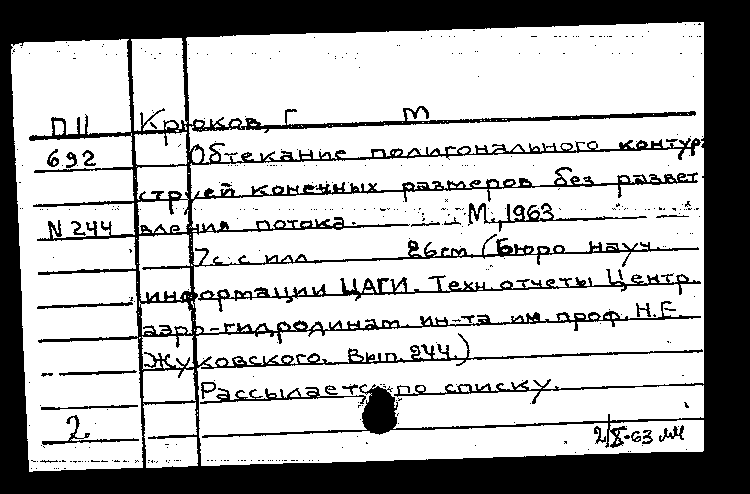 П11 Крюков, Г М
692 Обтекание полигонального контура
струей конечных размеров без развет-
N 244 вления потока. М., 1963
7с. с илл. 26см. (Бюро науч.
информации ЦАГИ. Техн. отчеты Центр.
аэро-гидродинам. ин-та им. проф. Н.Е.
Жуковского. Вып. 244.)
Рассылается по списку.
2.
2/X-63 мм